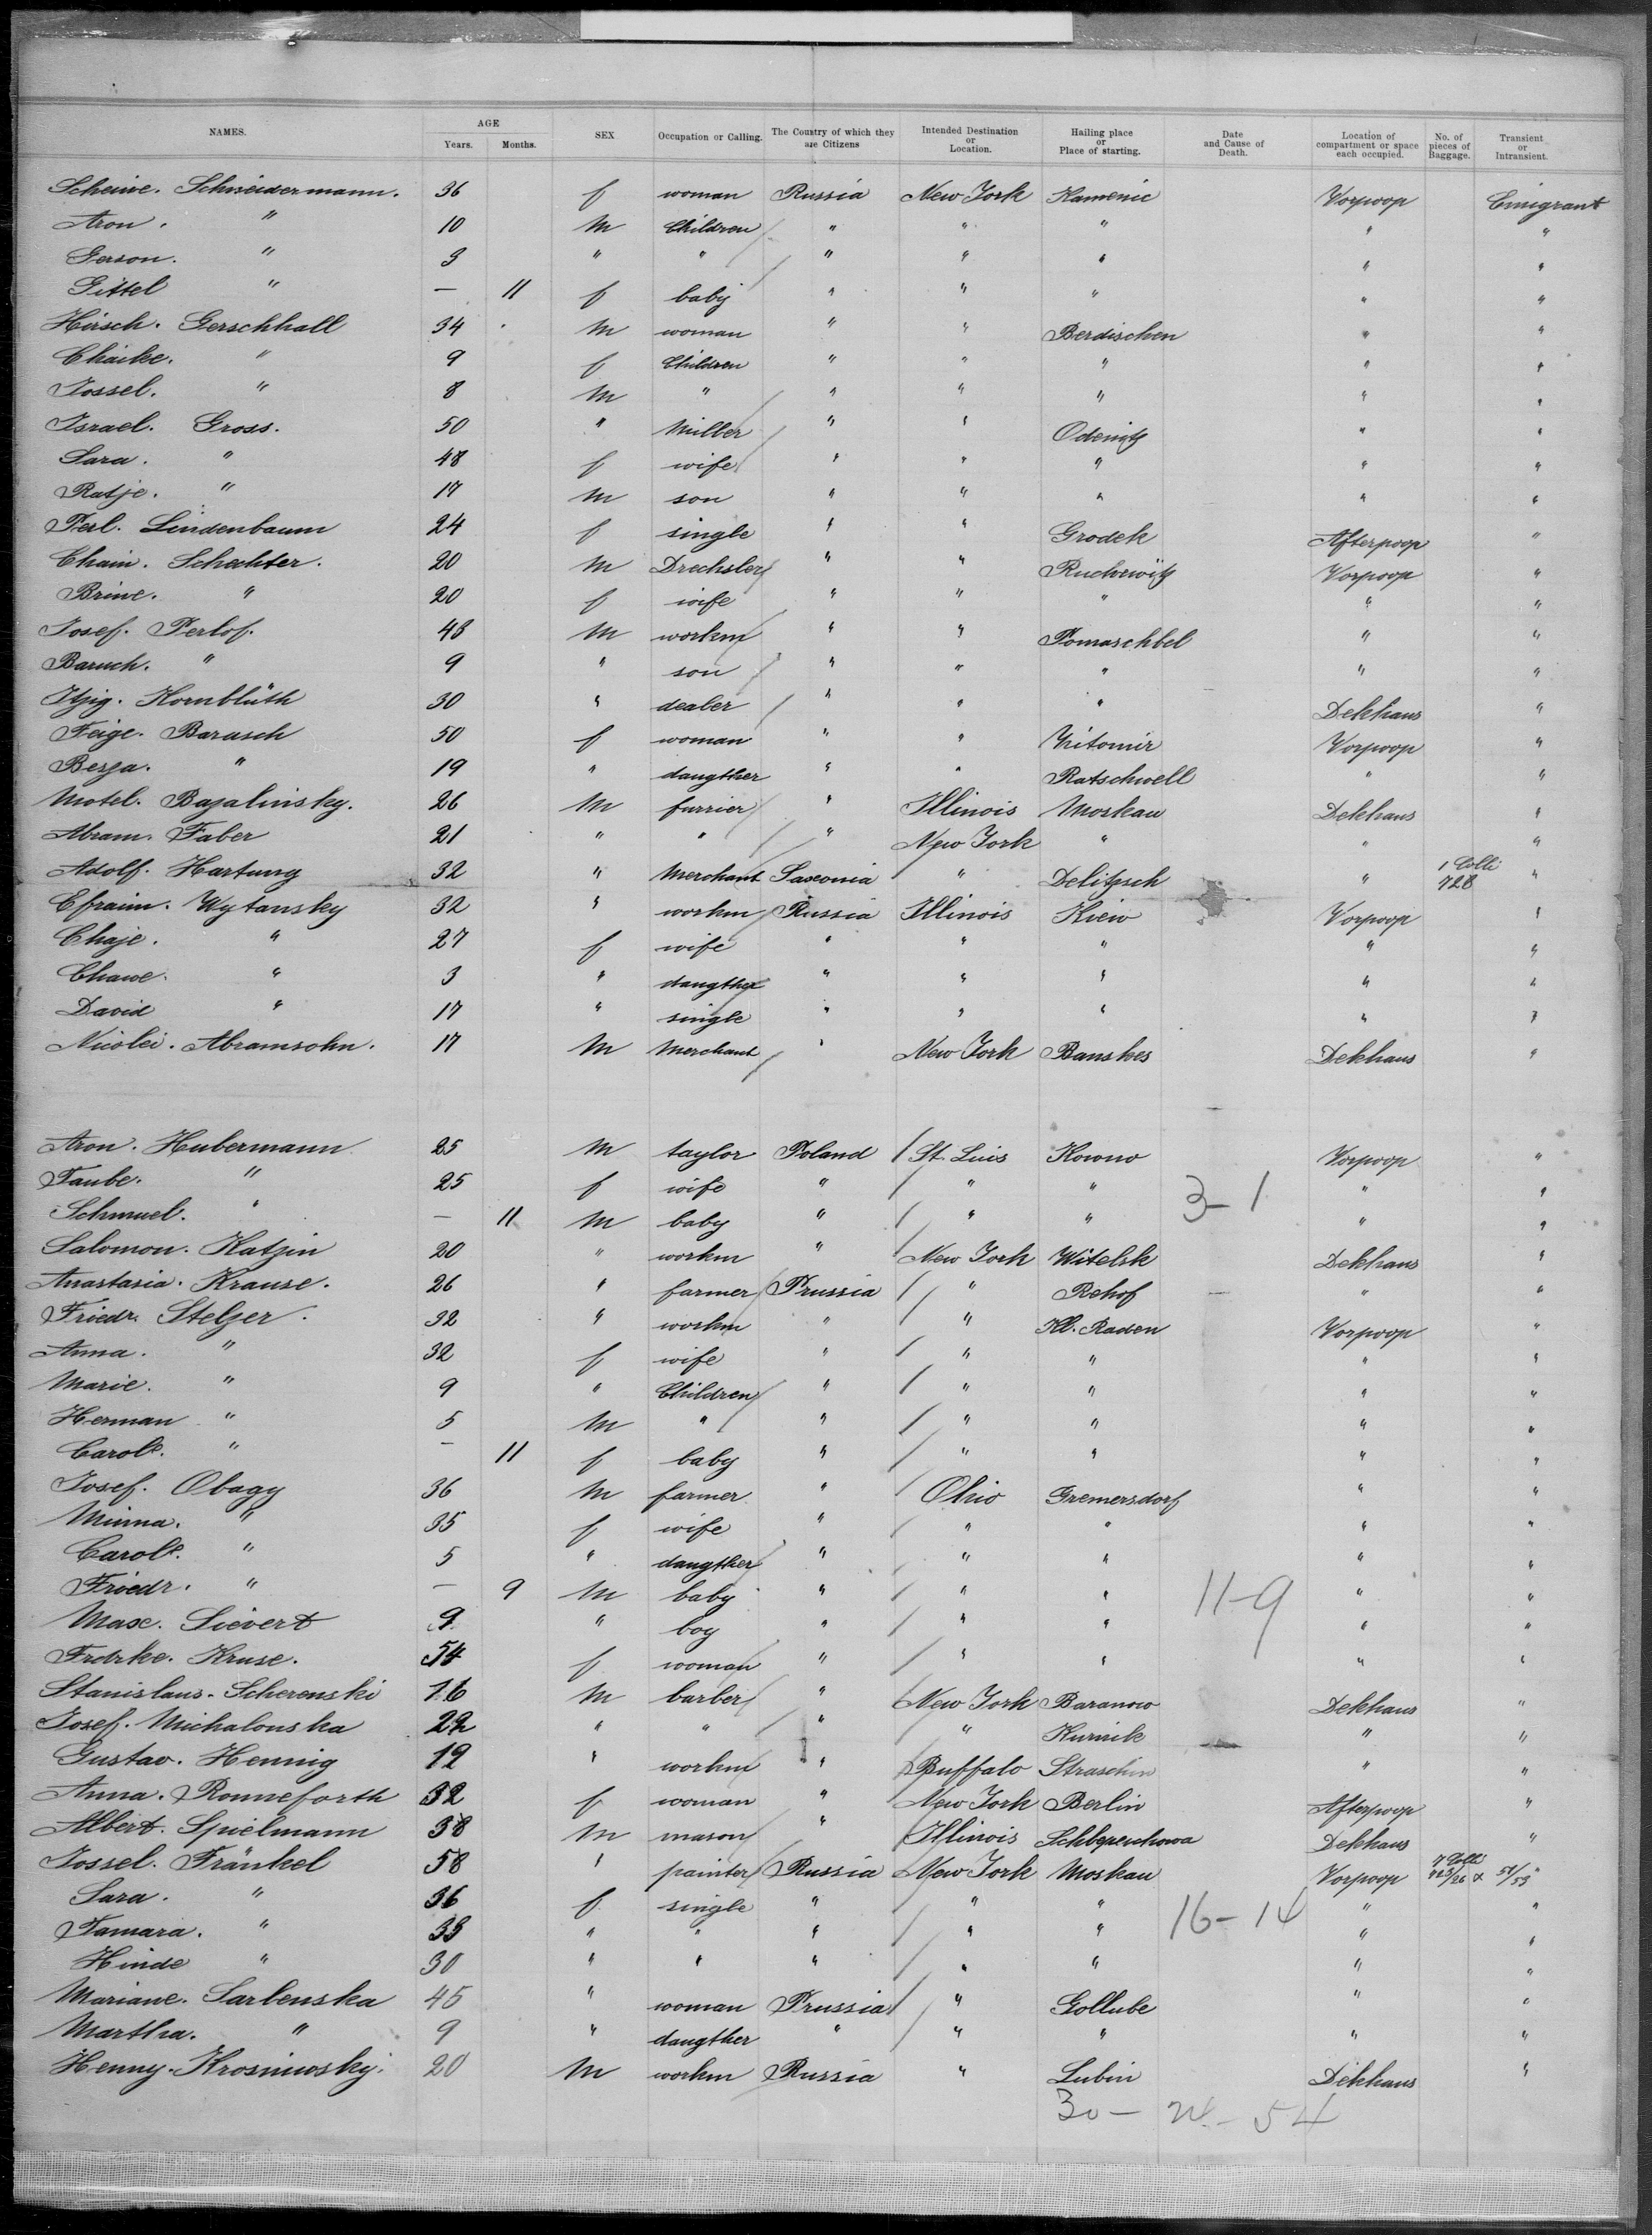 NAMES. AGE Years. Months. SEX Occupation or Calling. The Country of which they are Citizens Intended Destination or Location. Hailing place or Place of starting. Date and Cause of Death. Location of compartment or space each occupied. No. of pieces of Baggage. Transient or Intransient.
Scheine. Schneidermann. 36 f woman Russia New York Kamenic Vorpoop Emigrant
Aron. " 10 M Children " " " " "
Gerson. " 3 " " " " " " "
Gittel " — 11 f baby " " " " "
Hirsch. Gerschhall 34 M woman " " Berdischen " "
Chaike. " 9 f Children " " " " "
Jossel. " 8 M " " " " " "
Israel. Gross. 50 " Miller " " Odenitz " "
Sara. " 48 f wife " " " " "
Ratje. " 17 M son " " " " "
Perl. Lindenbaum 24 f single " " Grodek Afterpoop "
Chaim. Schechter. 20 M Drechsler " " Ruchewitz Vorpoop "
Brine. " 20 f wife " " " " "
Josef. Perlof. 48 M workm " " Pomaschbel " "
Baruch. " 9 " son " " " " "
Itzig. Kornblüth 30 " dealer " " " Dekhaus "
Feige. Barasch 50 f woman " " Yitomir Vorpoop "
Berza. " 19 " daugther " " Ratschwell " "
Motel. Bazalinsky. 26 M furrier " Illinois Moskau Dekhaus "
Abram. Faber 21 " " " New York " " "
Adolf. Hartung 32 " Merchant Saxonia " Delitzsch " 1 Colli 728 "
Efraim. Wytansky 32 " workm Russia Illinois Kiew Vorpoop "
Chaje. " 27 f wife " " " " "
Chawe. " 3 " daugther " " " " "
David " 17 " single " " " " "
Nicolei. Abramsohn. 17 M Merchant " New York Banskes Dekhaus "
Aron. Hubermann 25 M taylor Poland St. Luis Kowno Vorpoop "
Taube. " 25 f wife " " " 3-1 " "
Schmuel. " — 11 M baby " " " " "
Salomon. Katzin 20 " workm " New York Witelsk Dekhaus "
Anastasia. Krause. 26 " farmer Prussia " Rehof " "
Friedr. Stelzer. 32 " workm " " Kl. Raden Vorpoop "
Anna. " 32 f wife " " " " "
Marie. " 9 " Children " " " " "
Herman " 5 M " " " " " "
Carole. " — 11 f baby " " " " "
Josef. Obagy 36 M farmer " Ohio Gremersdorf " "
Minna. " 35 f wife " " " " "
Carole. " 5 " daugther " " " " "
Friedr. " — 9 M baby " " " 11-9 " "
Max. Sievert 9 " boy " " " " "
Frdrke. Kruse. 54 f woman " " " " "
Stanislaus. Scherenski 16 M barber " New York Baranow Dekhaus "
Josef. Michalonska 22 " " " " Kurnik " "
Gustav. Hennig 19 " workm " Buffalo Straschin " "
Anna. Ronneforth 32 f woman " New York Berlin Afterpoop "
Albert. Spielmann 38 M mason " Illinois Dekhaus "
Jossel. Fränkel 58 " painter Russia New York Moskau Vorpoop 7 Colli 723/26 & 51/53 "
Sara. " 36 f single " " " 16-14 " "
Tamara. " 33 " " " " " " "
Hinde " 30 " " " " " " "
Mariane. Sarbenska 45 " woman Prussia " Gollube " "
Martha. " 9 " daugther " " " " "
Henny. Krosniwosky. 20 M workm Russia " Lubin Dekhaus "
30 - 24 - 54